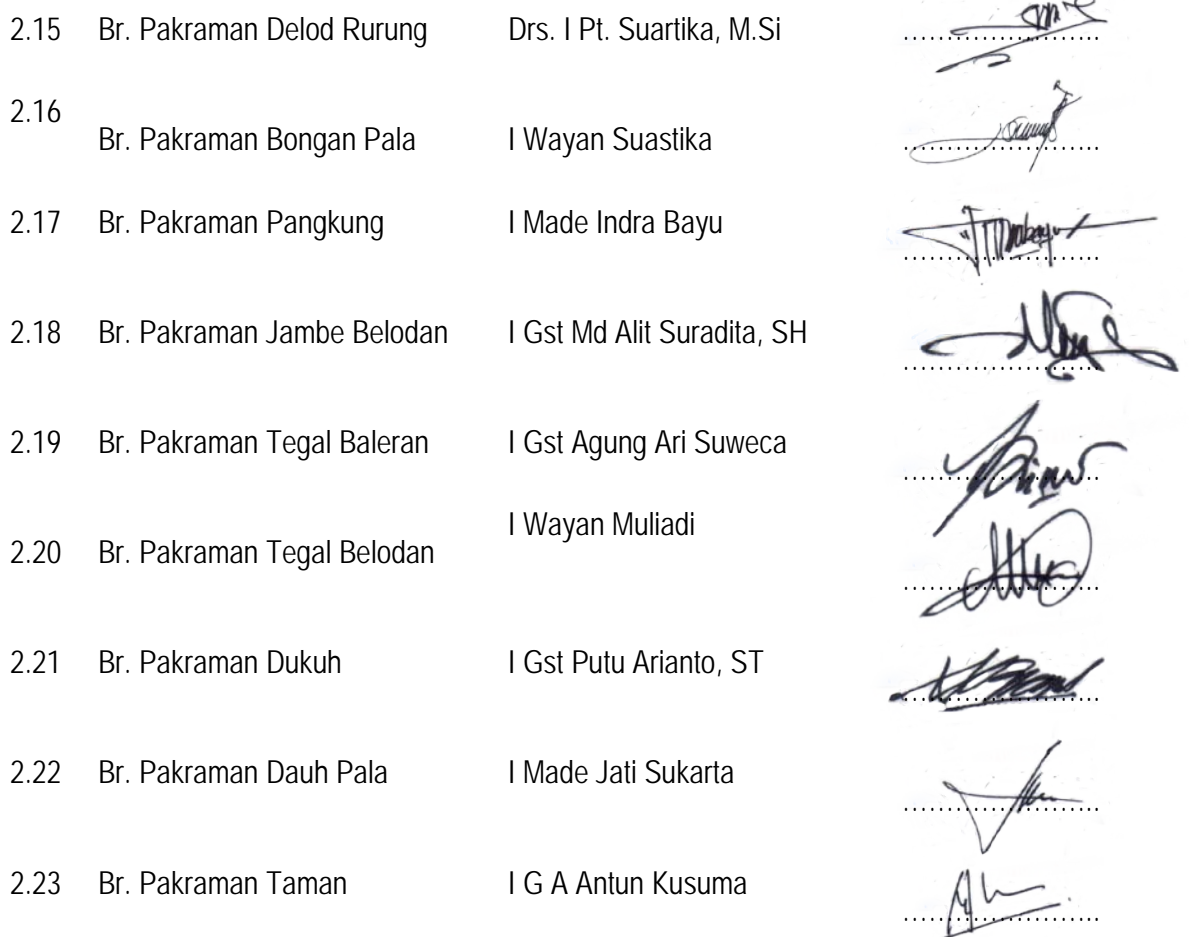 2.15 Br. Pakraman Delod Rurung Drs. I Pt. Suartika, M.Si ........................
2.16
Br. Pakraman Bongan Pala I Wayan Suastika ........................
2.17 Br. Pakraman Pangkung I Made Indra Bayu ........................
2.18 Br. Pakraman Jambe Belodan I Gst Md Alit Suradita, SH ........................
2.19 Br. Pakraman Tegal Baleran I Gst Agung Ari Suweca ........................
I Wayan Muliadi
2.20 Br. Pakraman Tegal Belodan ........................
2.21 Br. Pakraman Dukuh I Gst Putu Arianto, ST ........................
2.22 Br. Pakraman Dauh Pala I Made Jati Sukarta ........................
2.23 Br. Pakraman Taman I G A Antun Kusuma ........................